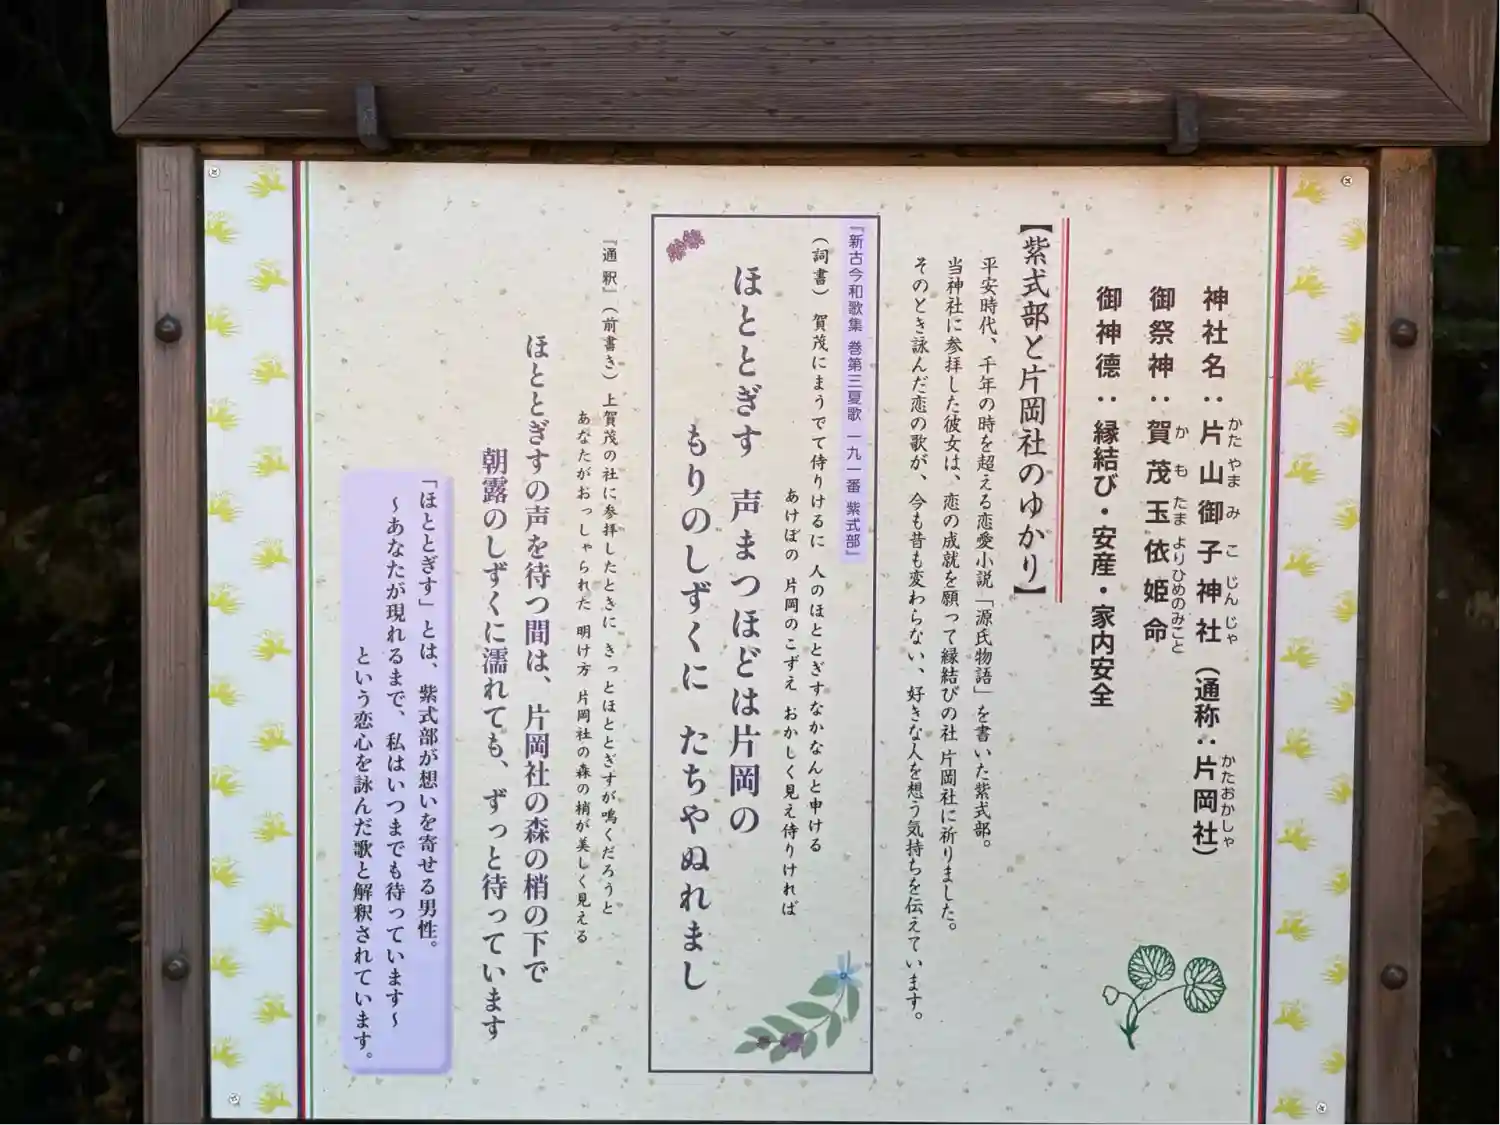 神社名：片山御子神社（通称：片岡社）
かたやまみこじんじゃ
かたおかしゃ
御祭神：賀茂玉依姫命
かもたまよりひめのみこと
御神徳：縁結び・安産・家内安全
【紫式部と片岡社のゆかり】
平安時代、千年の時を超える恋愛小説「源氏物語」を書いた紫式部。
当神社に参拝した彼女は、恋の成就を願って縁結びの社 片岡社に祈りました。
そのとき詠んだ恋の歌が、今も昔も変わらない、好きな人を想う気持ちを伝えています。
『新古今和歌集 巻第三夏歌 一九一番 紫式部』
（詞書）賀茂にまうでて侍りけるに 人のほととぎすなかなんと申ける
あけぼの 片岡のこずえ おかしく見え侍りければ
ほととぎす 声まつほどは片岡の
もりのしずくに たちやぬれまし
『通釈』（前書き）上賀茂の社に参拝したときに きっとほととぎすが鳴くだろうと
あなたがおっしゃられた 明け方 片岡社の森の梢が美しく見える
ほととぎすの声を待つ間は、片岡社の森の梢の下で
朝露のしずくに濡れても、ずっと待っています
「ほととぎす」とは、紫式部が想いを寄せる男性。
～あなたが現れるまで、私はいつまでも待っています～
という恋心を詠んだ歌と解釈されています。